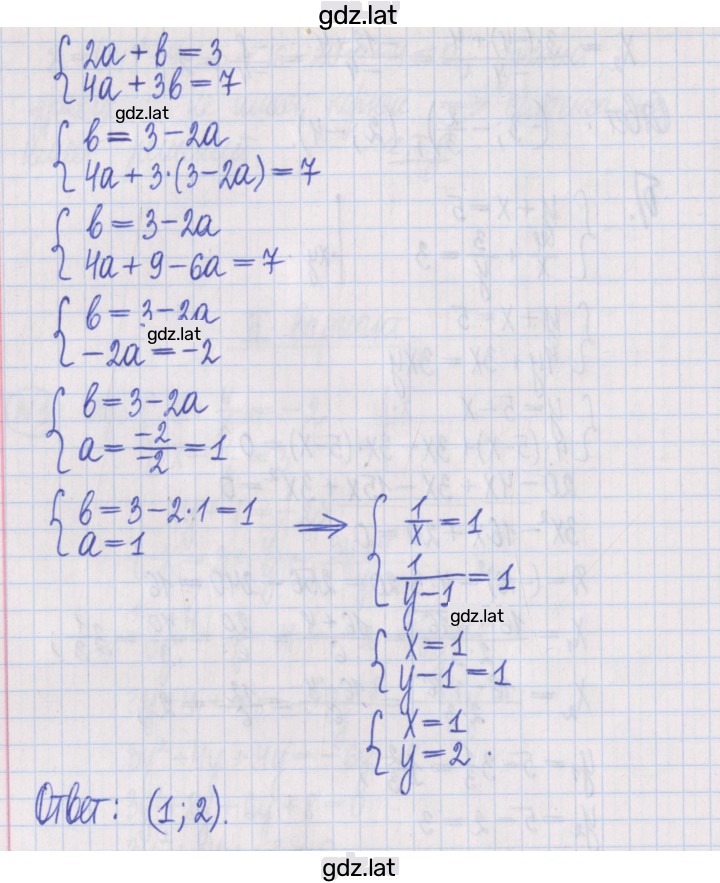 gdz.lat
2a + b = 3
4a + 3b = 7
gdz.lat
b = 3 - 2a
4a + 3·(3 - 2a) = 7
b = 3 - 2a
4a + 9 - 6a = 7
b = 3 - 2a
gdz.lat
-2a = -2
b = 3 - 2a
a = -2/-2 = 1
b = 3 - 2·1 = 1
a = 1
⟹
1/x = 1
1/(y-1) = 1
gdz.lat
x = 1
y - 1 = 1
x = 1
y = 2.
Ответ: (1; 2).
gdz.lat